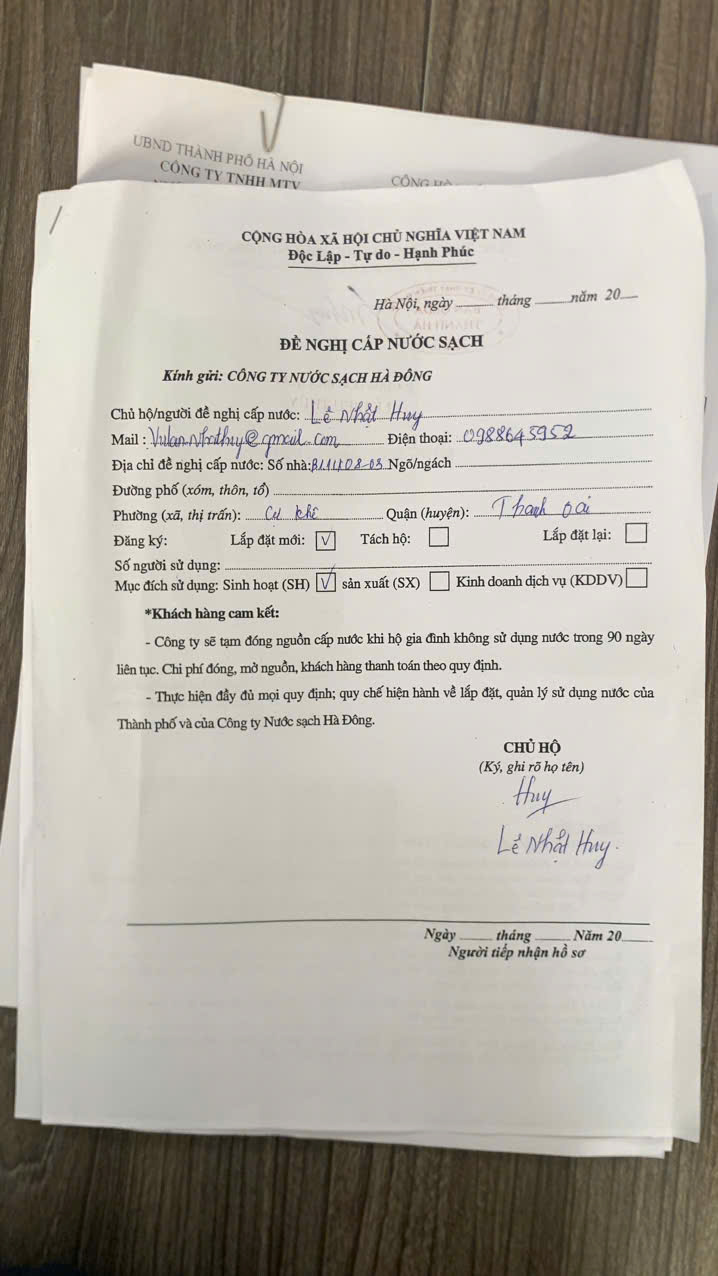 UBND THÀNH PHỐ HÀ NỘI
CÔNG TY TNHH MTV
CỘNG HÒA XÃ HỘI CHỦ NGHĨA VIỆT NAM
Độc Lập - Tự do - Hạnh Phúc
Hà Nội, ngày ........ tháng ........ năm 20....
ĐỀ NGHỊ CẤP NƯỚC SẠCH
Kính gửi: CÔNG TY NƯỚC SẠCH HÀ ĐÔNG
Chủ hộ/người đề nghị cấp nước: Lê Nhật Huy
Mail : Điện thoại: 0988645952
Địa chỉ đề nghị cấp nước: Số nhà: Ngõ/ngách
Đường phố (xóm, thôn, tổ)
Phường (xã, thị trấn): Cự Khê Quận (huyện): Thanh Oai
Đăng ký: Lắp đặt mới: ☑ Tách hộ: ☐ Lắp đặt lại: ☐
Số người sử dụng:
Mục đích sử dụng: Sinh hoạt (SH) ☑ sản xuất (SX) ☐ Kinh doanh dịch vụ (KDDV) ☐
*Khách hàng cam kết:
- Công ty sẽ tạm đóng nguồn cấp nước khi hộ gia đình không sử dụng nước trong 90 ngày
liên tục. Chi phí đóng, mở nguồn, khách hàng thanh toán theo quy định.
- Thực hiện đầy đủ mọi quy định; quy chế hiện hành về lắp đặt, quản lý sử dụng nước của
Thành phố và của Công ty Nước sạch Hà Đông.
CHỦ HỘ
(Ký, ghi rõ họ tên)
Huy
Lê Nhật Huy.
Ngày ........ tháng ........ Năm 20....
Người tiếp nhận hồ sơ